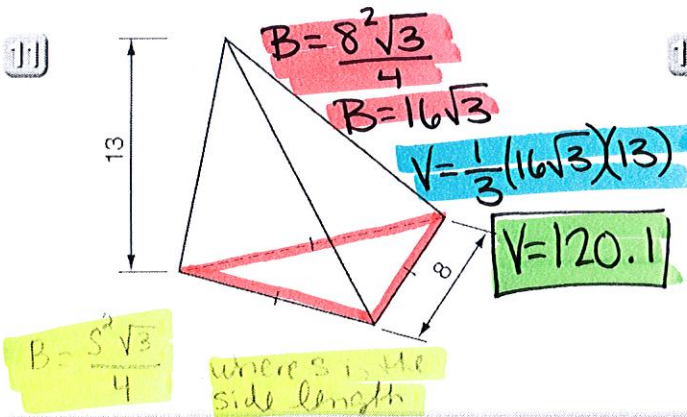 11
1
B = 8²√3 / 4
B = 16√3
13
V = 1/3 (16√3)(13)
8
V = 120.1
B = S²√3 / 4
where s is the
side length